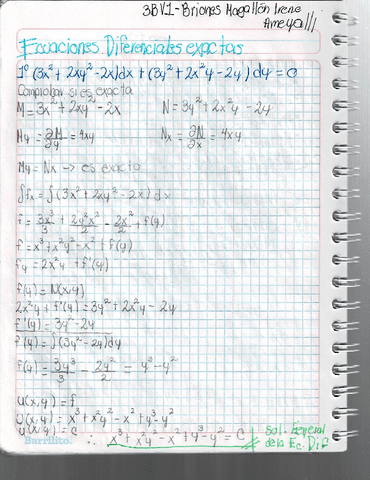 3BV1-Briones Magallón Irene
Ameyalli
Ecuaciones Diferenciales exactas
1º (3x² + 2xy² - 2x)dx + (3y² + 2x²y - 2y) dy = 0
Comprobar si es exacta
M = 3x² + 2xy² - 2x N = 3y² + 2x²y - 2y
My = ∂M/∂y = 4xy Nx = ∂N/∂x = 4xy
My = Nx → es exacta
∫fx = ∫(3x² + 2xy² - 2x) dx
f = 3x³/3 + 2y²x²/2 - 2x²/2 + f(y)
f = x³ + x²y² - x² + f(y)
fy = 2x²y + f'(y)
f(y) = N(x,y)
2x²y + f'(y) = 3y² + 2x²y - 2y
f'(y) = 3y² - 2y
f(y) = ∫(3y² - 2y)dy
f(y) = 3y³/3 - 2y²/2 = y³ - y²
u(x,y) = f
u(x,y) = x³ + x²y² - x² + y³ - y²
u(x,y) = C ∴ x³ + x²y² - x² + y³ - y² = C
Sol. General
de la Ec. Dif
Barrilito.